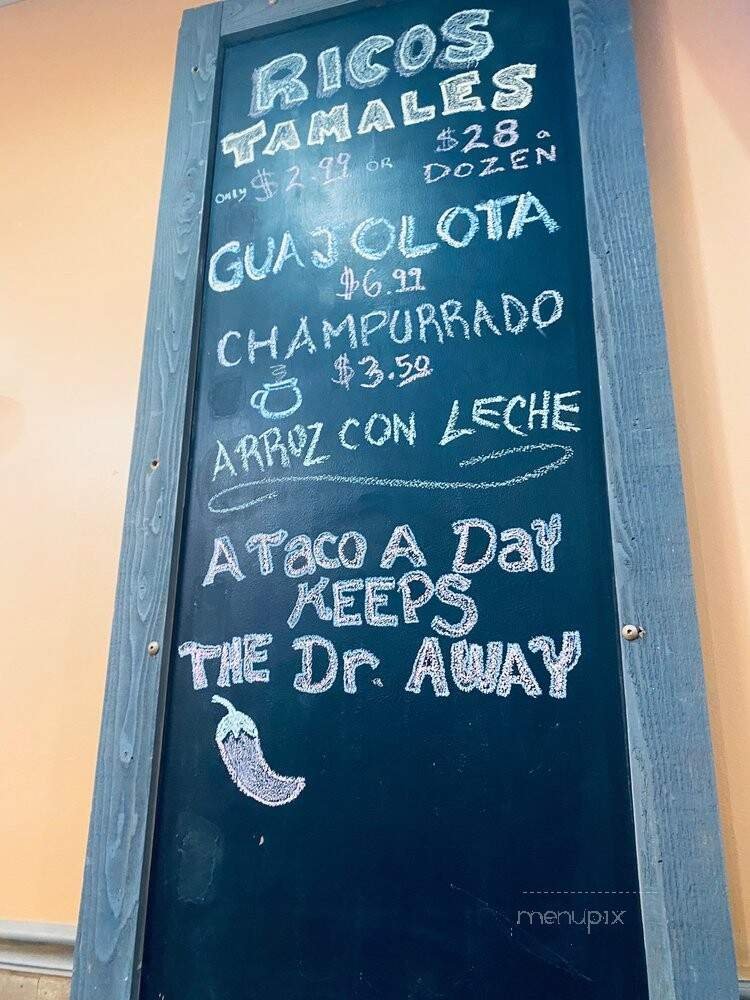 RICOS
TAMALES
ONLY $2.99 OR $28 a
DOZEN
GUAJOLOTA
$6.99
CHAMPURRADO
$3.50
ARROZ CON LECHE
A Taco A Day
KEEPS
THE Dr. AWAY
menupix